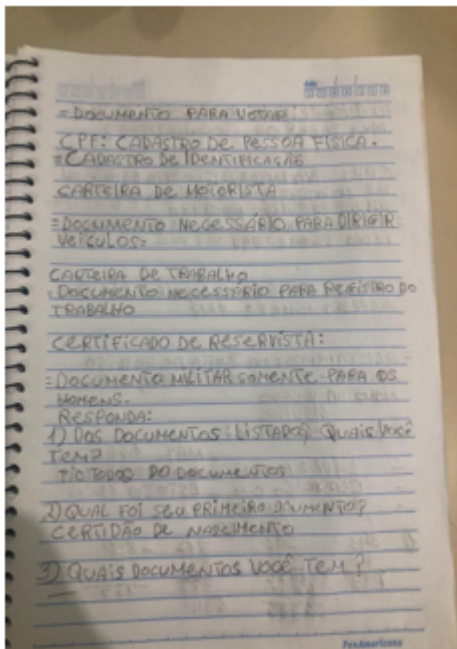 = DOCUMENTO PARA VOTAR
CPF: CADASTRO DE PESSOA FÍSICA.
= CADASTRO DE IDENTIFICAÇÃO
CARTEIRA DE MOTORISTA
= DOCUMENTO NECESSÁRIO PARA DIRIGIR
VEÍCULOS=
CARTEIRA DE TRABALHO
= DOCUMENTO NECESSÁRIO PARA REGISTRO DO
TRABALHO
CERTIFICADO DE RESERVISTA:
= DOCUMENTO MILITAR SOMENTE PARA OS
HOMENS.
RESPONDA:
1) DOS DOCUMENTOS LISTADOS, QUAIS VOCÊ
TEM?
DOCUMENTOS
2) QUAL FOI SEU PRIMEIRO DOCUMENTO?
CERTIDÃO DE NASCIMENTO
3) QUAIS DOCUMENTOS VOCÊ TEM?
PanAmericana